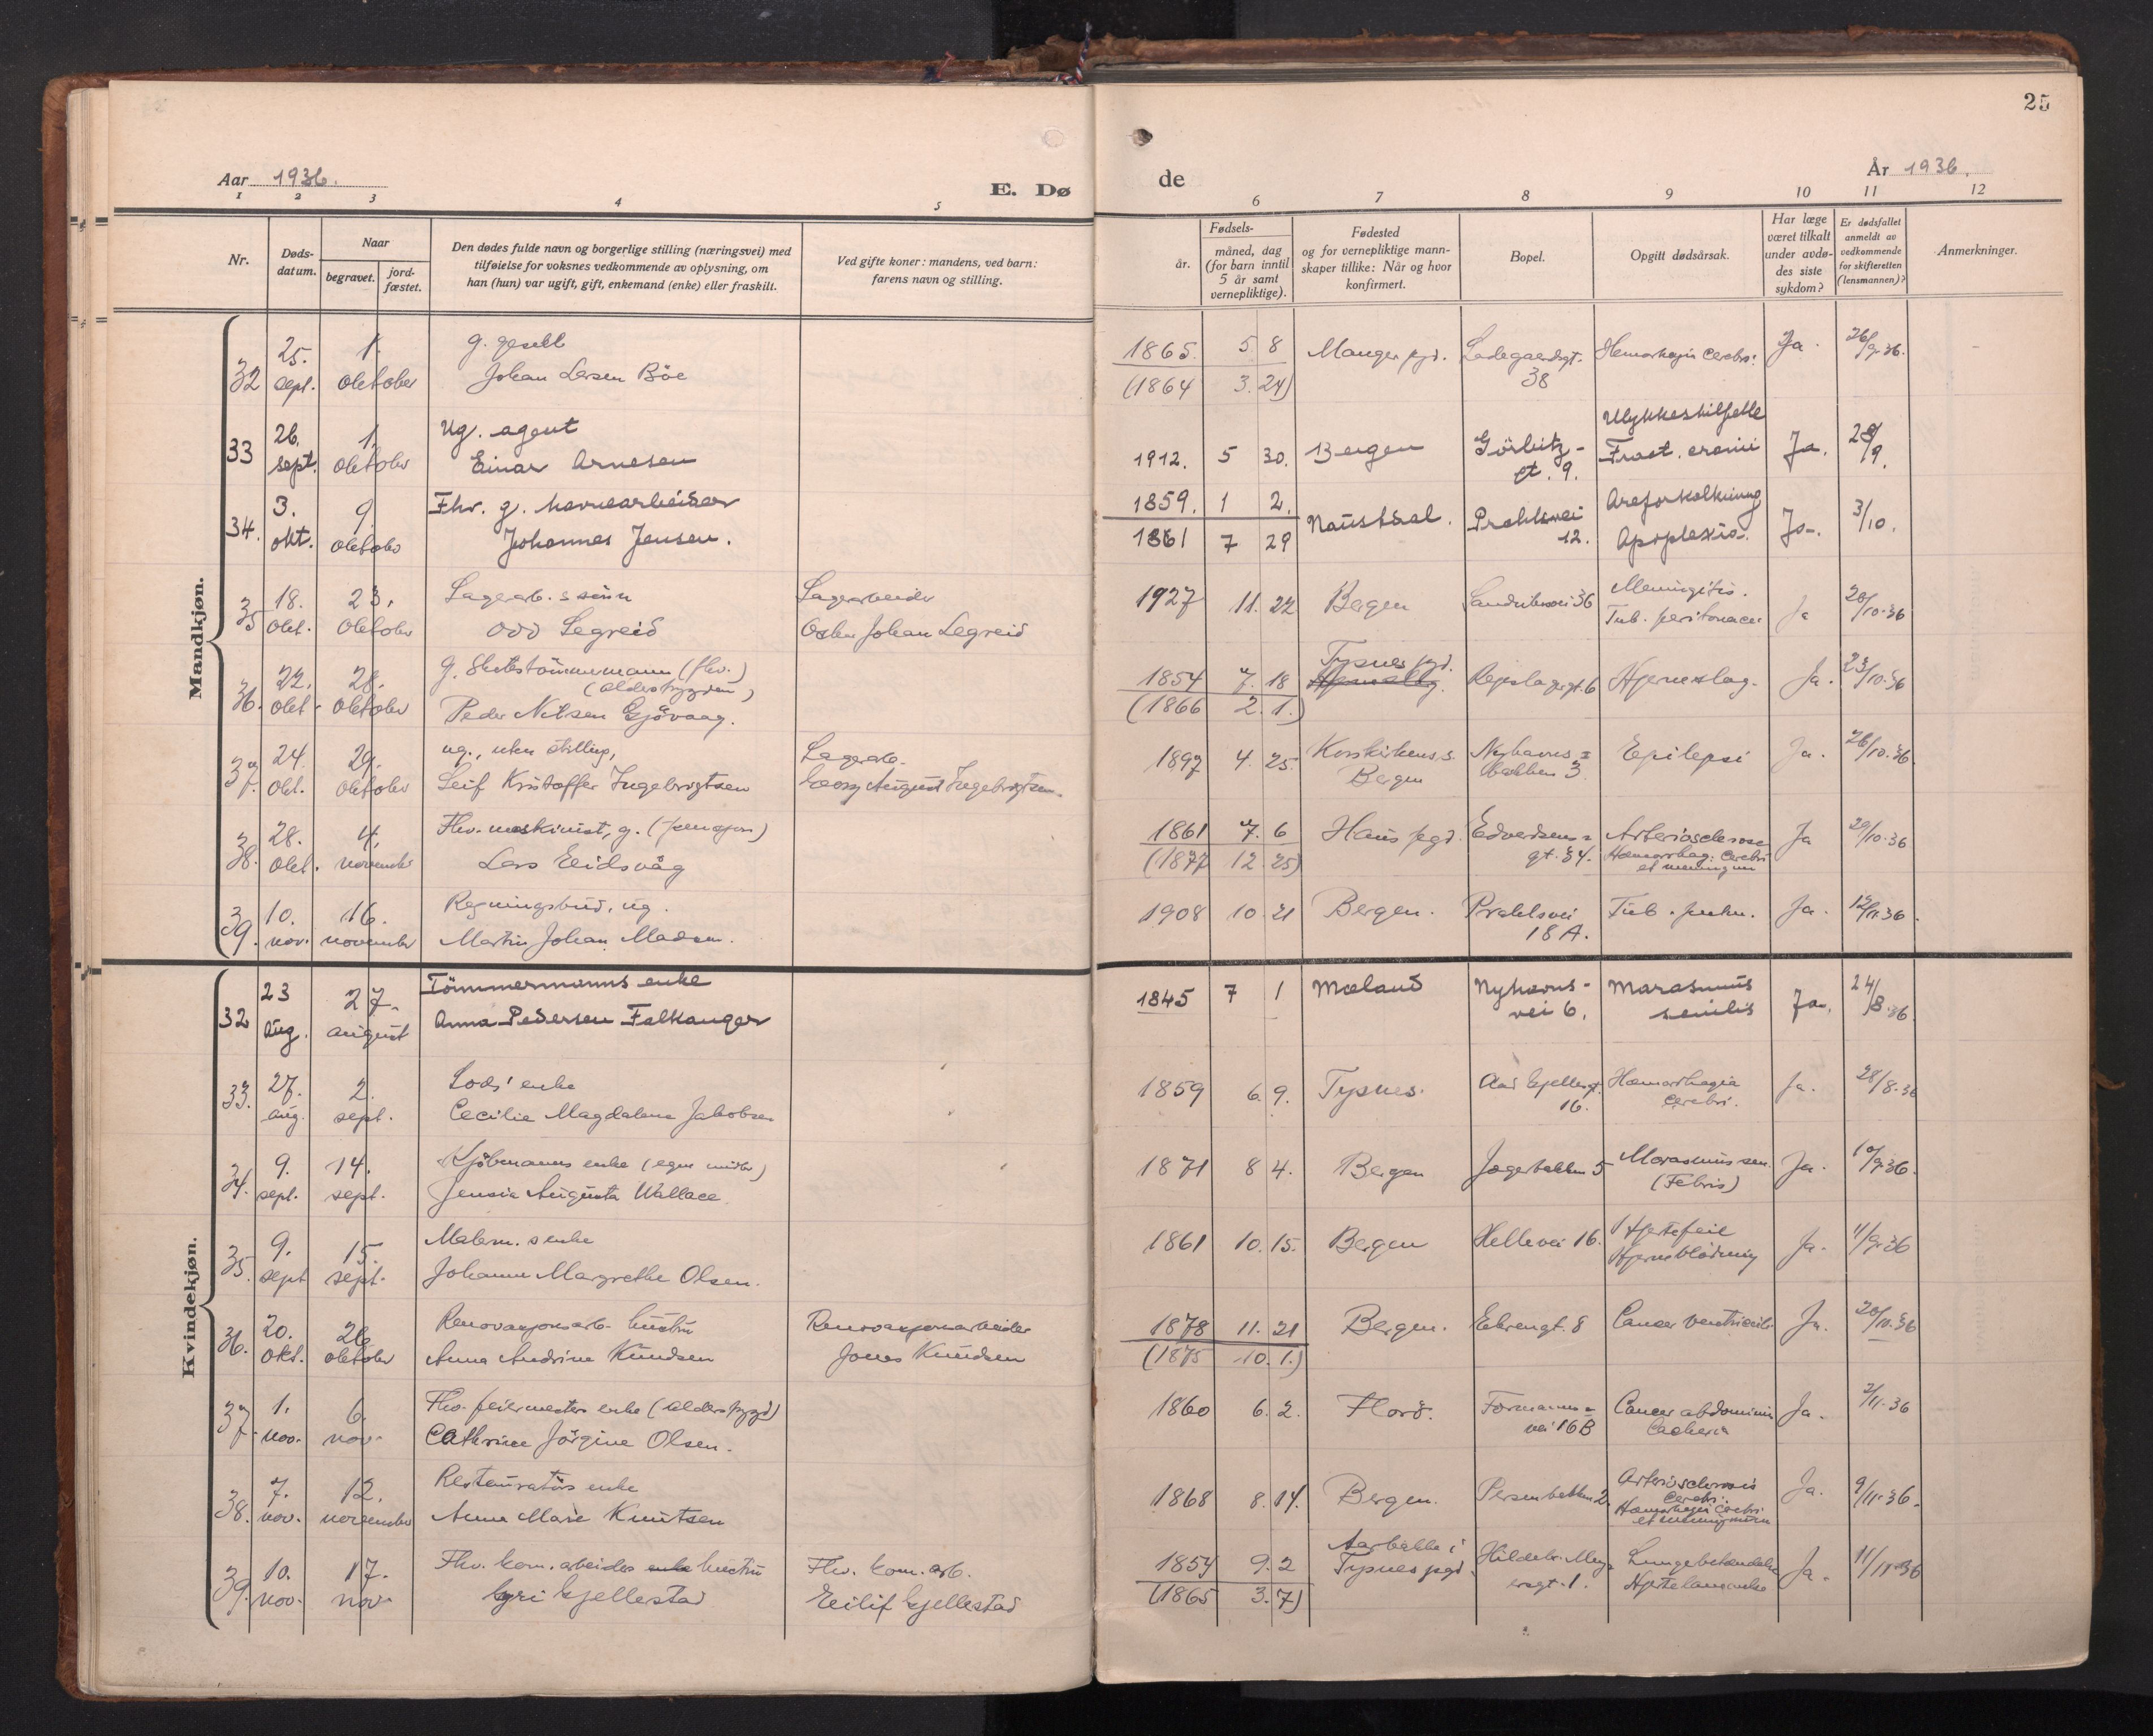 25
Aar 1936.
E. Dø
de
År 1936.
1 2 3 4 5 6 7 8 9 10 11 12
Nr.
Døds-
datum.
Naar
begravet.
jord-
fæstet.
Den dødes fulde navn og borgerlige stilling (næringsvei) med
tilføielse for voksnes vedkommende av oplysning, om
han (hun) var ugift, gift, enkemand (enke) eller fraskilt.
Ved gifte koner: mandens, ved barn:
farens navn og stilling.
Fødsels-
år.
måned, dag
(for barn inntil
5 år samt
vernepliktige).
Fødested
og for vernepliktige mann-
skaper tillike: Når og hvor
konfirmert.
Bopel.
Opgitt dødsårsak.
Har læge
været tilkalt
under avdø-
des siste
sykdom?
Er dødsfallet
anmeldt av
vedkommende
for skifteretten
(lensmannen)?
Anmerkninger.
Mandkjøn.
25. 1. g.
32 sept. oktober Johan Larsen Böe
1865. 5. 8 Manger pgd. Ladegaardsgt. Hemorhagia cerebri. Ja. 26/9.36.
(1864 3. 24) 38
26. 1. Ug. agent
33 sept. oktober Einar Arnesen
Ulykkestilfelle
1912. 5 30. Bergen Görbitz- Fract. cranii Ja. 28/9.
gt. 9.
3. 9. Fhv. g. havnearbeider
34. okt. oktober Johannes Jensen.
1859. 1 2. Naustdal. Prahlsvei Areforkalkning 3/10.
1861 7 29 12. Apoplexia. Ja.
18. 23. Lagerarb. s sønn Lagerarbeider
35 okt. oktober Odd Legreid Oskar Johan Legreid
1927 11. 22 Bergen Sandviksvei 36 Meningitis. 20/10.36
Tub. peritonaei Ja
22. 28. g. Skibstömmermann (fhv.)
(alderstrygden)
36. okt. oktober Peder Nilsen Gjövaag.
Tysnes pgd.
1854 7. 18 Repslagergt. 6 Hjerneslag. Ja. 23/10.36
(1866 2. 1.)
24. 29. ug., uten stilling, Lagerarb.
37. okt. oktober Leif Kristoffer Ingebrigtsen Georg August Ingebrigtsen.
1897 4. 25. Korskirkens s. Nyhavns= Epilepsi Ja. 26/10.36.
Bergen bakken 3.
28. 4. Fhv. maskinist, g. (pensjon)
38. okt. november Lars Eidsvåg
1861 7. 6 Haus pgd. Edvardsens= Arteriosclerose Ja 29/10.36
(1877 12. 25) gt. 34. Hæmorrhag. cerebri
et meningum
10. 16. Regningsbud, ug.
39. nov. november Martin Johan Madsen.
1908 10. 21 Bergen. Prahlsvei Tub. pulm. Ja. 12/11.36.
18 A.
Kvindekjøn.
23 27. Tömmermanns enke
32 aug. august Anna Pedersen Falkanger
1845 7 1 Mæland Nyhavns- Marasmus Ja. 24/8.36.
vei 6. senilis
27. 2. Lods' enke
33. aug. sept. Cecilie Magdalene Jakobsen
1859 6. 9. Tysnes. Aad Gjellesgt. Hæmorrhagia Ja. 28/8.36
16. cerebri.
9. 14. Kjöbmanns enke (egne midler)
34. sept. sept. Jensie Augusta Wallace.
1871 8 4. Bergen Jægerbakken 5 Marasmus sen. Ja. 10/9.36.
(Febris)
9. 15. Malerm. s enke
35. sept sept. Johanne Margrethe Olsen.
1861 10. 15. Bergen Hellevei 16. Hjertefeil Ja. 11/9.36
Hjerneblödning
20. 26. Renovasjonsarb. hustru Renovasjonsarbeider
36. okt. oktober Anna Andrine Knudsen Jonas Knudsen
1878 11. 21 Bergen. Ehrengt. 8 Cancer ventriculi Ja. 20/10.36
(1875 10. 1.)
1. 6. Fhv. feiermesters enke (alderstrygd)
37. nov. nov. Cathrine Jörgine Olsen.
1860 6. 2. Florö. Formanns= Cancer abdominis Ja. 2/11.36
vei 16 B Cachexia
7. 12. Restauratörs enke
38. nov. november Anna Marie Knutsen
1868 8. 14. Bergen. Persenbakken 2. Arteriosclerosis Ja. 9/11.36.
cerebri.
Hæmorhagia cerebri
et meningum
10. 17. Fhv. kom. arbeiders enke hustru Fhv. kom. arb.
39. nov. nov. Gyri Gjellestad Eilif Gjellestad
Aarbakke i
1854 9. 2 Tysnes pgd. Hildebr. Mey= Lungebetendelse Ja. 11/11.36
(1865 3. 7) ersgt. 1. Hjertelammelse